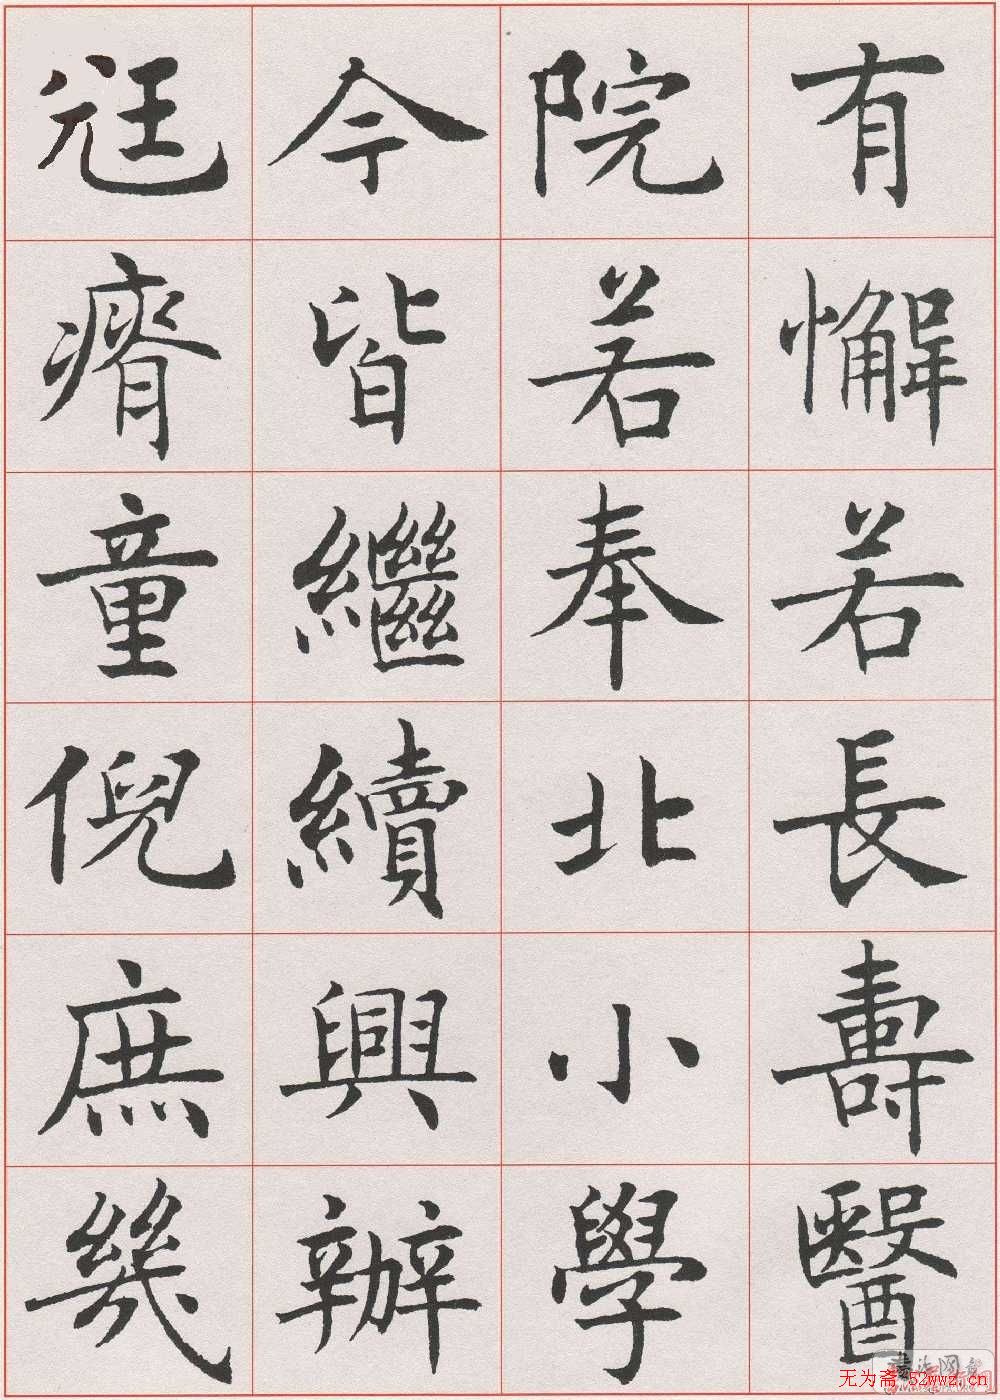 有懈若長壽醫
院若奉北小學
今皆繼續興辦
尩瘠童倪庶幾
无为斋 52wwz.cn